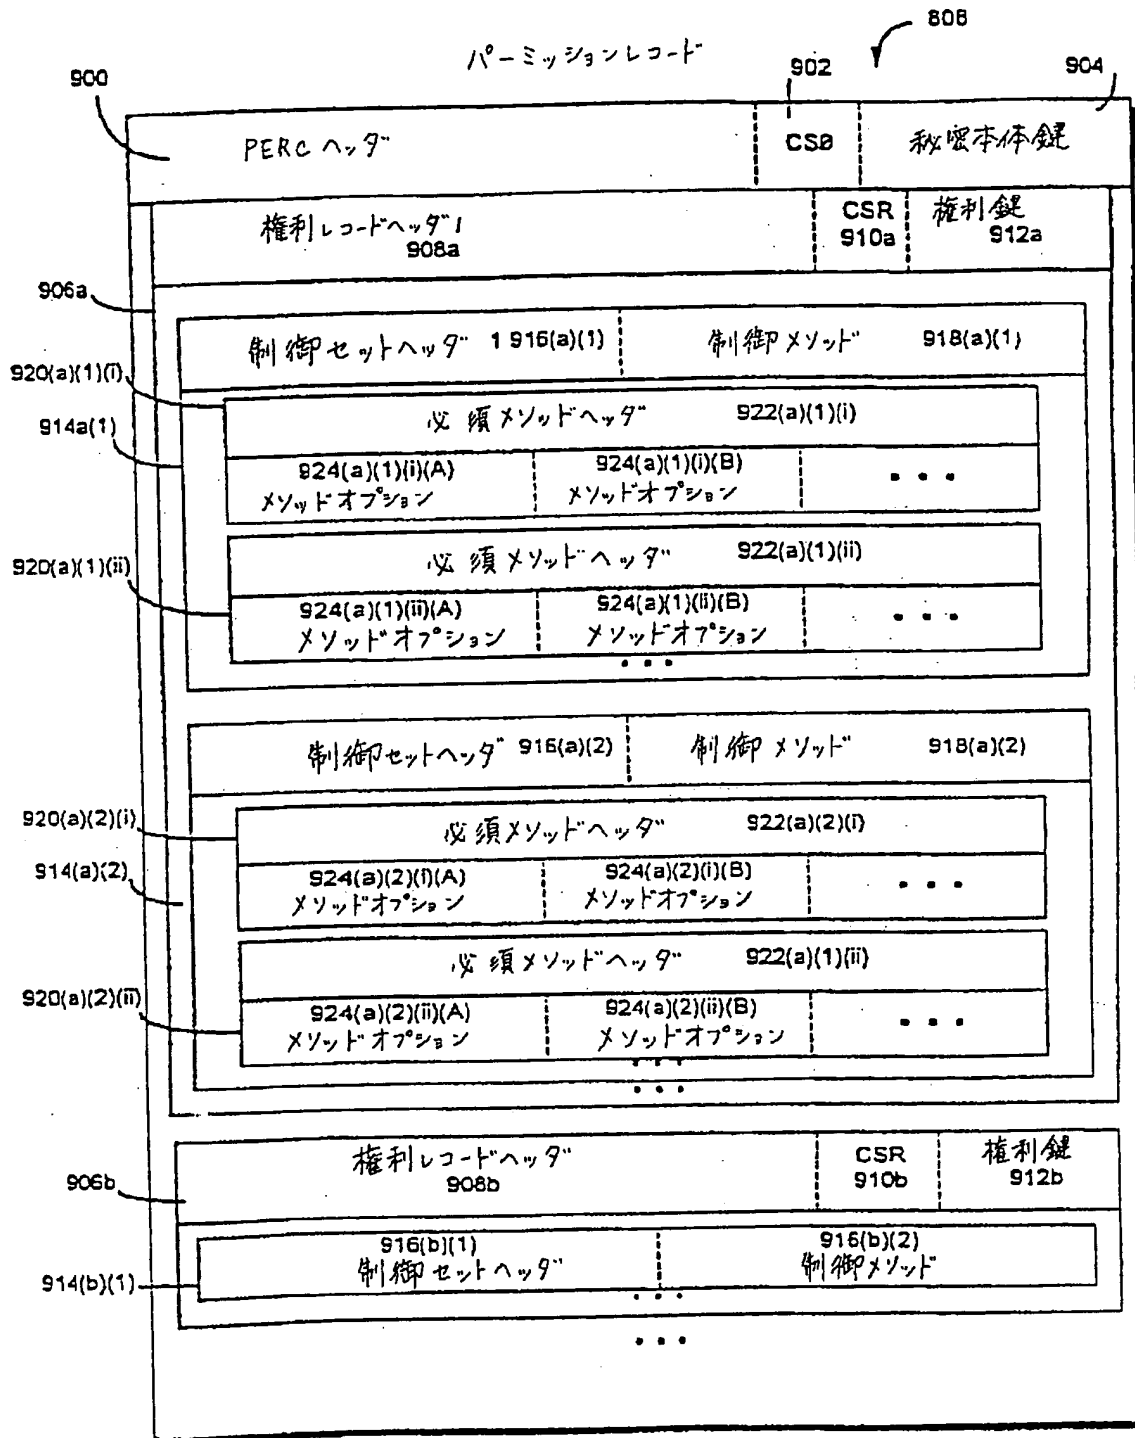 808
パーミッションレコード
900
902
904
PERCヘッダ
CS0
秘密本体鍵
権利レコードヘッダ1
908a
CSR
910a
権利鍵
912a
906a
制御セットヘッダ 1 916(a)(1)
制御メソッド 918(a)(1)
920(a)(1)(i)
必須メソッドヘッダ 922(a)(1)(i)
914a(1)
924(a)(1)(i)(A)
メソッドオプション
924(a)(1)(i)(B)
メソッドオプション
• • •
必須メソッドヘッダ 922(a)(1)(ii)
920(a)(1)(ii)
924(a)(1)(ii)(A)
メソッドオプション
924(a)(1)(ii)(B)
メソッドオプション
• • •
• • •
制御セットヘッダ 916(a)(2)
制御メソッド 918(a)(2)
920(a)(2)(i)
必須メソッドヘッダ 922(a)(2)(i)
914(a)(2)
924(a)(2)(i)(A)
メソッドオプション
924(a)(2)(i)(B)
メソッドオプション
• • •
必須メソッドヘッダ 922(a)(1)(ii)
920(a)(2)(ii)
924(a)(2)(ii)(A)
メソッドオプション
924(a)(2)(ii)(B)
メソッドオプション
• • •
• • •
• • •
権利レコードヘッダ
908b
CSR
910b
権利鍵
912b
906b
916(b)(1)
制御セットヘッダ
916(b)(2)
制御メソッド
914(b)(1)
• • •
• • •